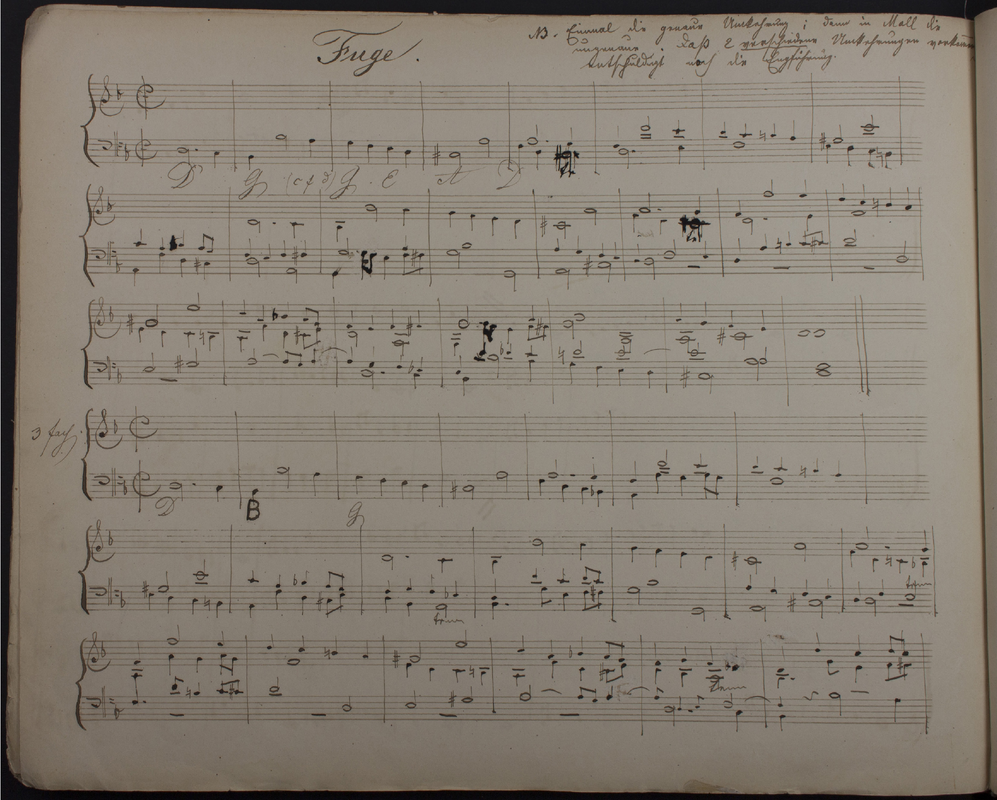 Fuge.
NB. Einmal die genaue Umkehrung; dann in Moll die
ungenaue. Daß 2 verschiedene Umkehrungen vorkommen
entschuldigt noch die Engführung.
D G (c f d) G E A D
3 fach
D B G